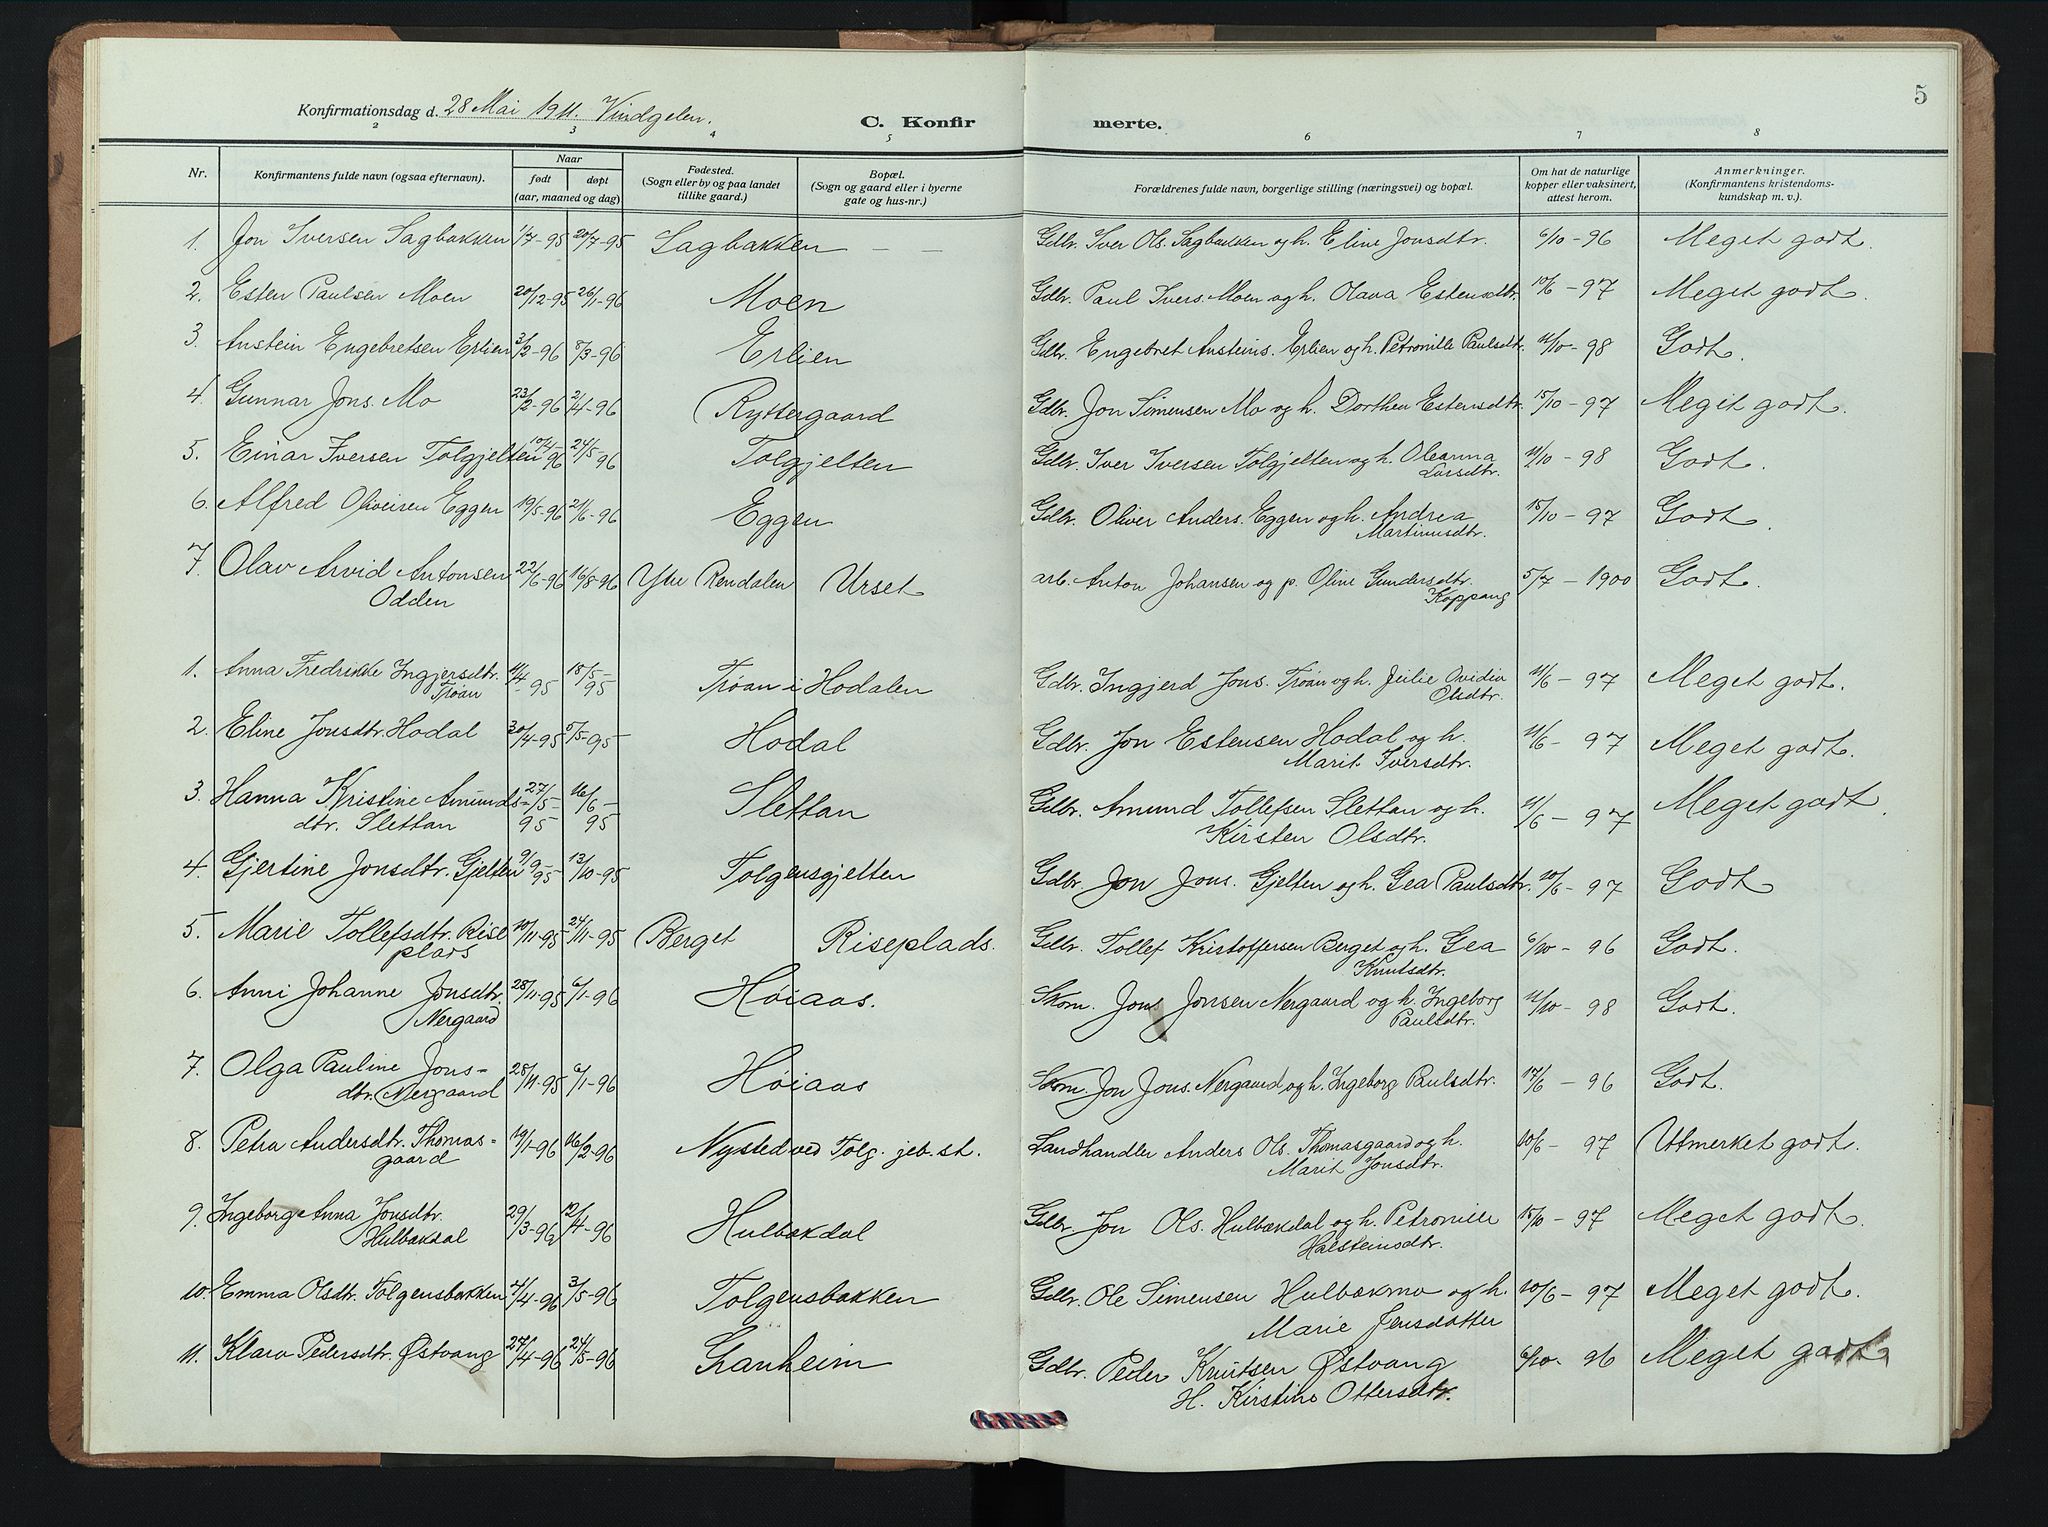 5
Konfirmationsdag d. 28 Mai 1911. Vindgelen.
C. Konfir merte.
2 3 4 5 6 7 8
Nr. Konfirmantens fulde navn (ogsaa efternavn). Naar født døpt (aar, maaned og dag) Fødested. (Sogn eller by og paa landet tillike gaard.) Bopæl. (Sogn og gaard eller i byerne gate og hus-nr.) Forældrenes fulde navn, borgerlige stilling (næringsvei) og bopæl. Om hat de naturlige kopper eller vaksinert, attest herom. Anmerkninger. (Konfirmantens kristendoms- kundskap m. v.).
1. Jon Iversen Sagbakken 1/7-95 20/7-95 Sagbakken — — Gdbr. Iver Ols. Sagbakken og h. Eline Jonsdtr. 6/10-96 Meget godt.
2. Esten Paulsen Moen 20/12-95 26/1-96 Moen Gdbr. Paul Ivers. Moen og h. Olava Estensdtr. 10/6-97 Meget godt.
3. Anstein Engebretsen Erlien 3/2-96 8/3-96 Erlien Gdbr. Engebret Ansteins. Erlien og h. Petronille Paulsdtr. 11/10-98 Godt.
4. Gunnar Jons. Mo 23/2-96 2/4-96 Ryttergaard Gdbr. Jon Simensen Mo og h. Dorthea Estensdtr. 15/10-97 Meget godt.
5. Einar Iversen Tolgjelten 10/4-96 24/5-96 Tolgjelten Gdbr. Iver Iversen Tolgjelten og h. Oleanna
Larsdtr. 11/10-98 Godt.
6. Alfred Oliversen Eggen 19/5-96 21/6-96 Eggen Gdbr. Oliver Anders. Eggen og h. Andrea
Martinusdtr. 15/10-97 Godt.
7. Olav Arvid Antonsen 22/6-96 16/8-96 Ytre Rendalen Urset arb. Anton Johansen og p. Oline Gundersdtr. 5/7-1900 Godt.
Odden Koppang
1. Anna Fredrikke Ingjersdtr. 11/4-95 18/5-95 Trøan i Hodalen Gdbr. Ingjerd Jons. Trøan og h. Julie Ovidia 11/6-97 Meget godt.
Trøan Olsdtr.
2. Eline Jonsdtr. Hodal 30/4-95 5/5-95 Hodal Gdbr. Jon Estensen Hodal og h. 11/6-97 Meget godt.
Marit Iversdtr.
3. Hanna Kristine Amunds- 27/5-95 16/6-95 Slettan Gdbr. Amund Tollefsen Slettan og h. 11/6-97 Meget godt.
dtr. Slettan Kirsten Olsdtr.
4. Gjertine Jonsdtr. Gjelten 9/9-95 13/10-95 Tolgensgjelten Gdbr. Jon Jons. Gjelten og h. Gea Paulsdtr. 10/6-97 Godt
5. Marie Tollefsdtr. Rise 10/11-95 24/11-95 Berget Riseplads. Gdbr. Tollef Kristoffersen Berget og h. Gea 6/10-96 Godt.
plads Knutsdtr.
6. Anni Johanne Jonsdtr. 28/11-95 6/1-96 Høiaas. Skom. Jons Jonsen Nergaard og h. Ingeborg 11/10-98 Godt.
Nergaard Paulsdtr.
7. Olga Pauline Jons- 28/11-95 6/1-96 Høiaas Skom Jon Jons. Nergaard og h. Ingeborg Paulsdtr. 17/6-96 Godt.
dtr. Nergaard
8. Petra Andersdtr. Thomas- 19/1-96 16/2-96 Nysted ved Tolg. jeb. st. Landhandler Anders Ols. Thomasgaard og h. 10/6-97 Utmerket godt.
gaard Marit Jonsdtr.
9. Ingeborg Anna Jonsdtr. 29/3-96 12/4-96 Hulbækdal Gdbr. Jon Ols. Hulbækdal og h. Petronille 15/10-97 Meget godt.
Hulbækdal Halsteinsdtr.
10. Emma Olsdtr. Tolgensbakken 4/4-96 3/5-96 Tolgensbakken Gdbr. Ole Simensen Hulbækmo og h. 10/6-97 Meget godt.
Marie Jensdatter
11. Klara Pedersdtr. Østvang 27/4-96 24/5-96 Granheim Gdbr. Peder Knutsen Østvang 6/10-96 Meget godt
H. Kirstine Ottersdtr.